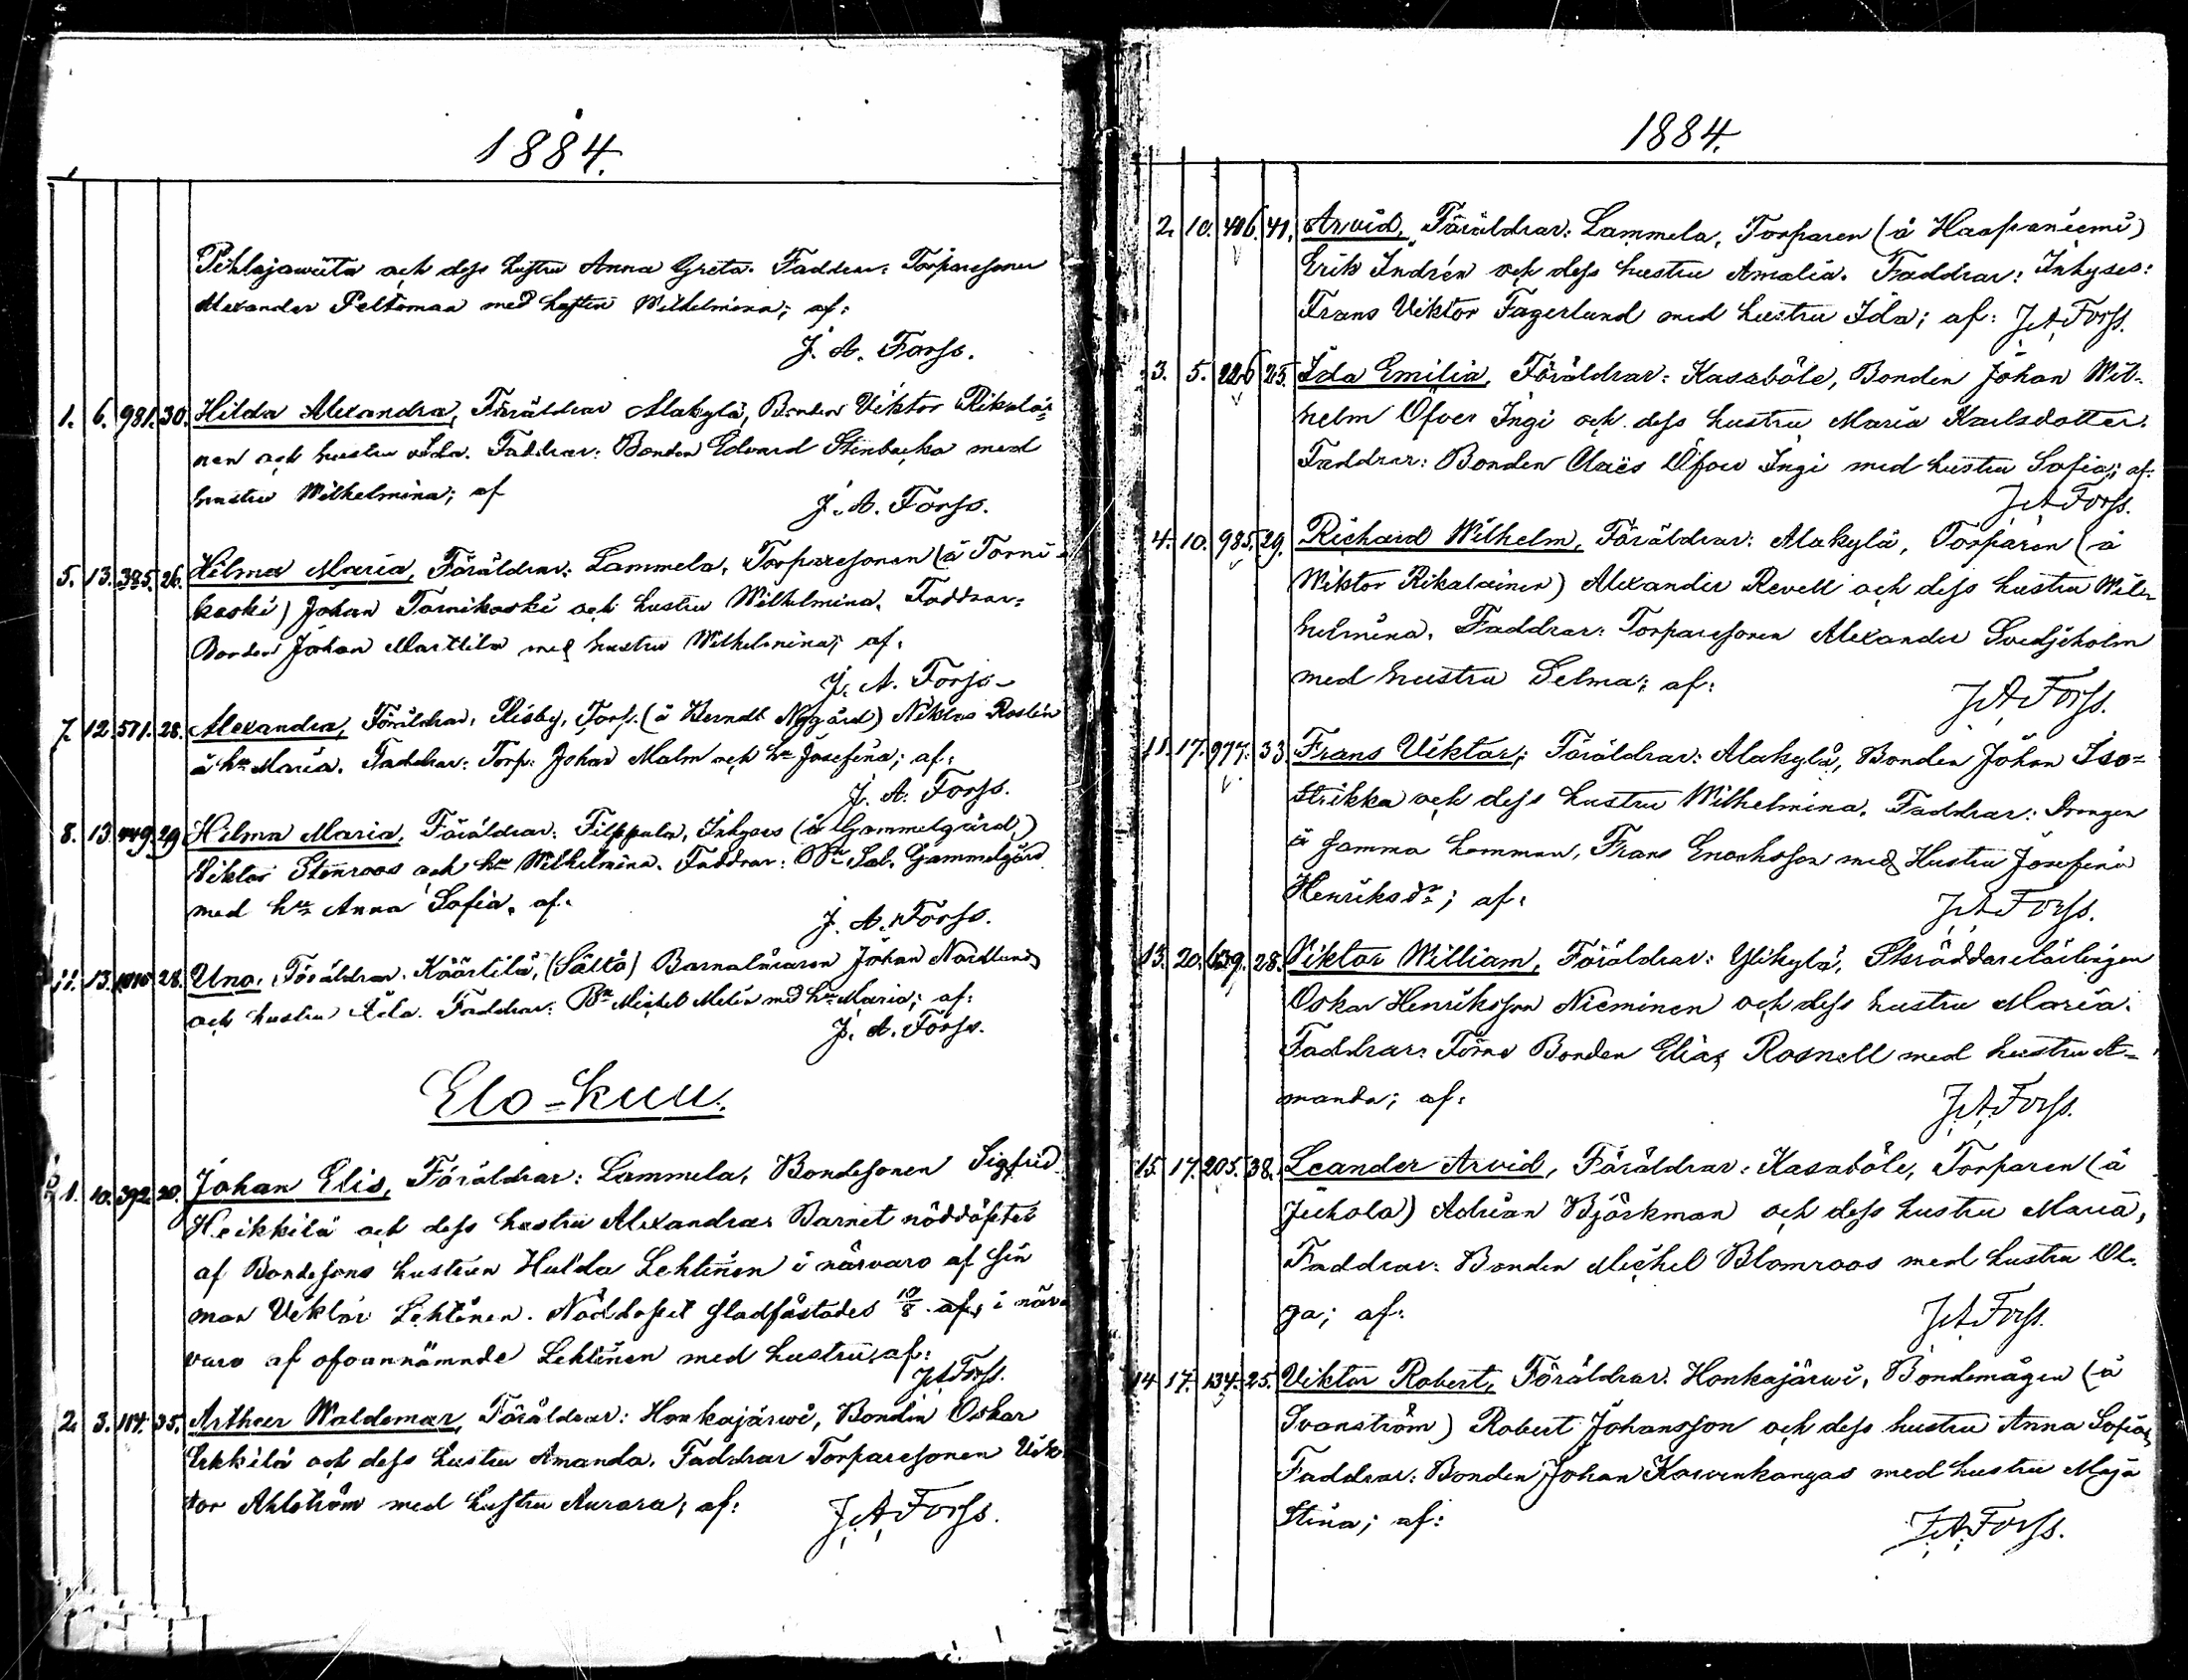 1884.
Pihlajawiita och dess hustru Anna Greta. Faddrar: Torparesonen
Alexander Peltomaa med hustru Wilhelmina; af:
J. A. Forss.
1. 6. 981. 30. Hilda Alexandra, Föräldrar Alakylä, Bonden Viktor Rikalai-
nen och hustru Ida. Faddrar: Bonden Edvard Stenbacka med
hustru Wilhelmina; af
J. A. Forss.
5. 13. 385. 26. Hilma Maria, Föräldrar: Lammela, Torparesonen (å Torni-
koski) Johan Tornikoski och hustru Wilhelmina. Faddrar:
Bonden Johan Marttila med hustru Wilhelmina; af.
J. A. Forss
7. 12. 571. 28. Alexandra, Föräldrar, Risby, Torp. (å Berndt Nygård) Niklas Roslin
å hu Maria. Faddrar: Torp. Johan Malm och hu Josefina; af:
J. A. Forss.
8. 13. 449. 29. Hilma Maria, Föräldrar: Filppula, Inhyses (å Gammelgård)
Viktor Stenroos och hu Wilhelmina. Faddrar: Bn Sal. Gammelgård
med hu Anna Sofia. af.
J. A. Forss.
11. 13. 1010 28. Uno. Föräldrar. Käärtilä, (Sälto) Barnaläraren Johan Nordlund
och hustru Ida. Faddrar: Bn Michel Melin med hu Maria; af:
J. A. Forss.
Elo-kuu.
1. 10. 392 20. Johan Elis, Föräldrar: Lammela, Bondesonen Sigfrid
Heikkilä och dess hustru Alexandra. Barnet nöddöptes
af Bondesons hustrun Hulda Lehtinen i närvaro af sin
man Viktor Lehtinen. Nöddopet stadfästades 10/8 af, i när-
varo af ofvannämnde Lehtinen med hustru, af:
J. A. Forss.
2. 3. 114. 35. Arthur Waldemar, Föräldrar: Honkajärwi, Bonden Oskar
Erkkilä och dess hustru Amanda. Faddrar Torparesonen Vik-
tor Ahlström med hustru Aurora; af:
J. A. Forss.
1884.
2. 10. 406. 41. Arvid, Föräldrar: Lammela, Torparen (å Haapaniemi)
Erik Indrén och dess hustru Amalia. Faddrar: Inhyses:
Frans Viktor Fagerlund med hustru Ida; af: J. A. Forss.
3. 5. 226 25. Ida Emilia, Föräldrar: Kasaböle, Bonden Johan Wil-
helm Öfver Ingi och dess hustru Maria Karlsdotter.
Faddrar: Bonden Claës Öfver Ingi med hustru Sofia; af:
J. A. Forss.
4. 10. 985. 29. Richard Wilhelm, Föräldrar: Alakylä, Torparen (å
Wiktor Rikalainen) Alexander Revell och dess hustru Wil-
helmina. Faddrar: Torparesonen Alexander Svedjeholm
med hustru Selma; af:
J. A. Forss.
11. 17. 977. 33 Frans Viktor; Föräldrar: Alakylä, Bonden Johan Iso-
Strikka och dess hustru Wilhelmina. Faddrar: Drängen
å samma hemman, Frans Enochsson med Hustru Josefina
Henriksdr; af:
J. A. Forss.
13. 20. 639. 28. Viktor William, Föräldrar: Ylikylä, Skräddarelärlingen
Oskar Henriksson Nieminen och dess hustru Maria.
Faddrar: Förre Bonden Elias Rosnell med hustru A-
manda; af:
J. A. Forss.
15. 17. 205. 38. Leander Arvid, Föräldrar: Kasaböle, Torparen (å
Juhola) Adrian Björkman och dess hustru Maria,
Faddrar: Bonden Michel Blomroos med hustru Ol-
ga; af:
J. A. Forss.
14 17. 134. 25. Viktor Robert, Föräldrar. Honkajärwi, Bondemågen (å
Svanström) Robert Johansson och dess hustru Anna Sofia,
Faddrar: Bonden Johan Korvenkangas med hustru Maja
Stina; af:
J. A. Forss.